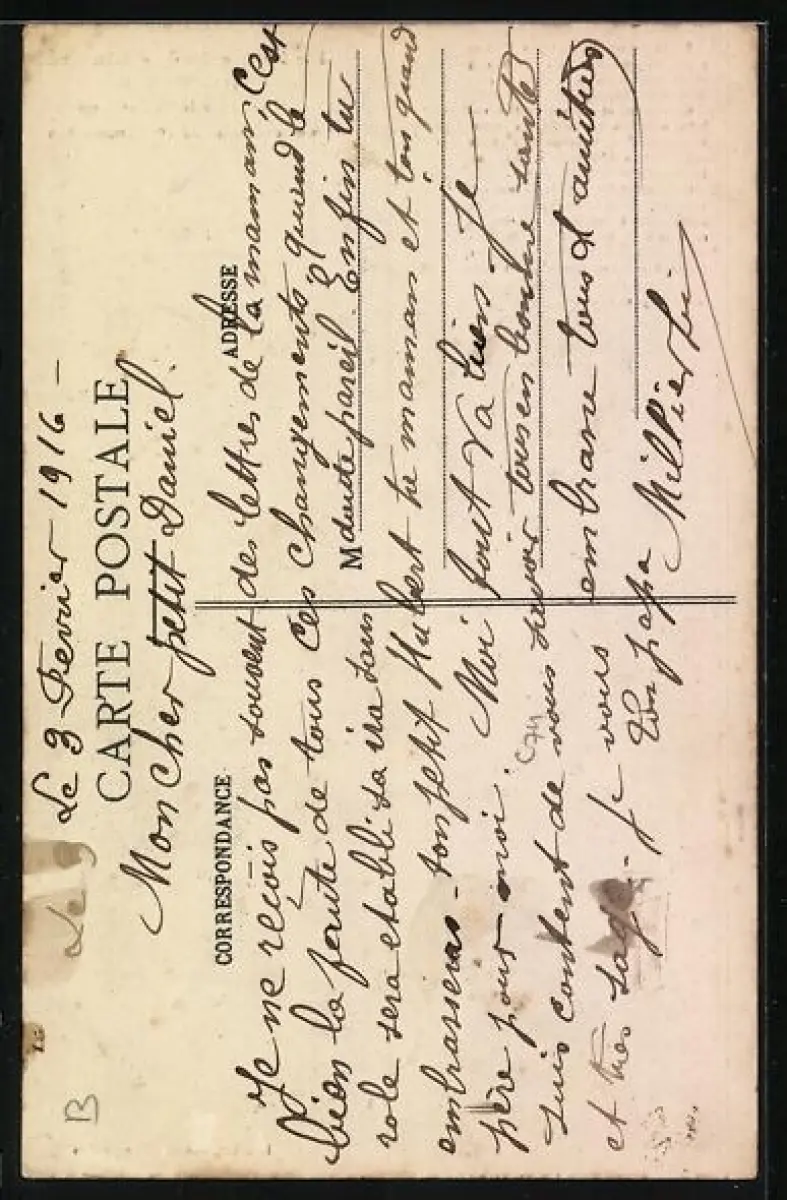 Le 3 Fevrier 1916 -
CARTE POSTALE
Mon cher petit Daniel.
CORRESPONDANCE
ADRESSE
Je ne reçois pas souvent des lettres de la maman, C'est
bien la faute de tous ces changements, quand le
M
role sera etabli sa ira sans doute pareil. Enfin tu
embrasseras - ton petit Hubert te maman et ton grand
père pour moi. Moi tout va bien. Je
suis content de vous savoir tous en bonne santé
et tres sage - je vous embrasse tous et amitiés
Ton papa
B